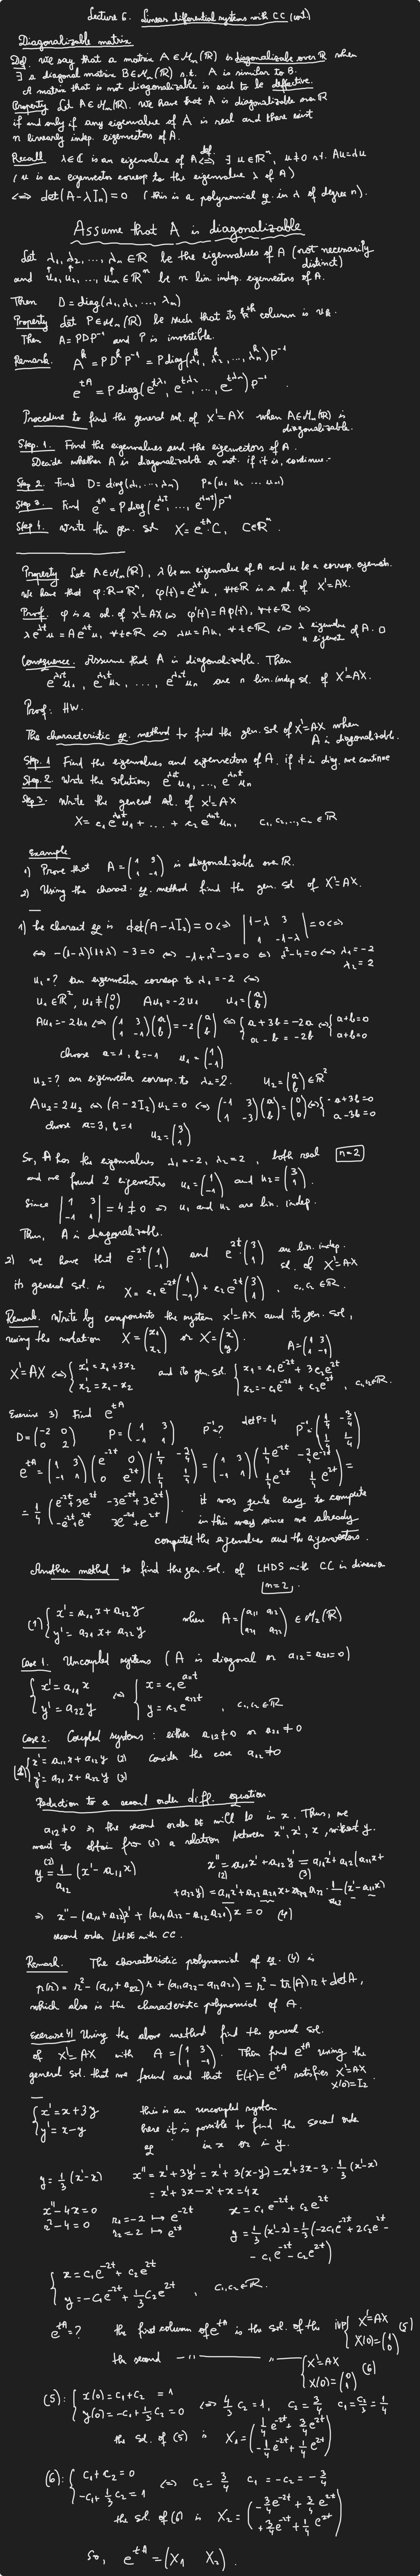 Lecture 6. Linear differential systems with CC (cont)
Diagonalizable matrix
Def. We say that a matrix A ∈ Mn(ℝ) is diagonalizable over ℝ when
∃ a diagonal matrix B ∈ Mn(ℝ) s.t. A is similar to B.
A matrix that is not diagonalizable is said to be defective.
Property Let A ∈ Mn(ℝ). We have that A is diagonalizable over ℝ
if and only if any eigenvalue of A is real and there exist
n linearly indep. eigenvectors of A.
Recall λ ∈ ℂ is an eigenvalue of A <=> def. ∃ u ∈ ℝ^n, u ≠ 0 s.t. Au = λu
(u is an eigenvector corresp to the eigenvalue λ of A)
<=> det(A - λIn) = 0 (this is a polynomial eq. in λ of degree n).
Assume that A is diagonalizable
Let λ1, λ2, ..., λn ∈ ℝ be the eigenvalues of A (not necessarily distinct)
and u1, u2, ..., un ∈ ℝ^n be n lin indep. eigenvectors of A.
Then D = diag(λ1, λ2, ..., λn)
Property Let P ∈ Mn(ℝ) be such that its kth column is uk.
Then A = PDP^-1 and P is invertible.
Remark. A^k = PD^kP^-1 = P diag(λ1^k, λ2^k, ..., λn^k) P^-1
e^tA = P diag(e^tλ1, e^tλ2, ..., e^tλn) P^-1.
Procedure to find the general sol. of X' = AX when A ∈ Mn(ℝ) is diagonalizable.
Step. 1. Find the eigenvalues and the eigenvectors of A.
Decide whether A is diagonalizable or not. if it is, continue.
Step 2. Find D = diag(λ1, ..., λn) P = (u1 u2 ... un)
Step 3. Find e^tA = P diag(e^λ1t, ..., e^λnt) P^-1
Step 4. Write the gen. sol X = e^tA · C, C ∈ ℝ^n.
Property Let A ∈ Mn(ℝ), λ be an eigenvalue of A and u be a corresp. eigenvect.
We have that φ: ℝ → ℝ^n, φ(t) = e^λt u, ∀t ∈ ℝ is a sol. of X' = AX.
Proof. φ is a sol. of X' = AX <=> φ'(t) = Aφ(t), ∀t ∈ ℝ <=>
λe^λt u = A e^λt u, ∀t ∈ ℝ <=> λu = Au, ∀t ∈ ℝ <=> λ eigenvalue u eigenvect of A. □
Consequence. Assume that A is diagonalizable. Then
e^λ1t u1, e^λ2t u2, ..., e^λnt un are n lin. indep sol. of X' = AX.
Proof: HW.
The characteristic eq. method to find the gen. sol of X' = AX when
A is diagonalizable.
Step. 1 Find the eigenvalues and eigenvectors of A. if it is diag. we continue
Step. 2. Write the solutions e^λ1t u1, ..., e^λnt un
Step 3. Write the general sol. of X' = AX
X = c1 e^λ1t u1 + ... + c2 e^λnt un, c1, c2, ..., cn ∈ ℝ
Example
1) Prove that A = (1 3; 1 -1) is diagonalizable over ℝ.
2) Using the charact. eq. method find the gen. sol of X' = AX.
1) the charact eq is det(A - λI2) = 0 <=> |1-λ 3; 1 -1-λ| = 0 <=>
<=> -(1-λ)(1+λ) - 3 = 0 <=> -1 + λ² - 3 = 0 <=> λ² - 4 = 0 <=> λ1 = -2
λ2 = 2
u1 = ? an eigenvector corresp to λ1 = -2 <=>
u1 ∈ ℝ², u1 ≠ (0; 0) Au1 = -2u1 u1 = (a; b)
Au1 = -2u1 <=> (1 3; 1 -1)(a; b) = -2(a; b) <=> { a + 3b = -2a; a - b = -2b <=> { a + b = 0; a + b = 0
choose a = 1, b = -1 u1 = (1; -1)
u2 = ? an eigenvector corresp. to λ2 = 2. u2 = (a; b) ∈ ℝ²
Au2 = 2u2 <=> (A - 2I2)u2 = 0 <=> (-1 3; 1 -3)(a; b) = (0; 0) <=> { -a + 3b = 0; a - 3b = 0
choose a = 3, b = 1 u2 = (3; 1)
So, A has the eigenvalues λ1 = -2, λ2 = 2, both real n = 2
and we found 2 eigenvectors u1 = (1; -1) and u2 = (3; 1).
Since |1 3; -1 1| = 4 ≠ 0 => u1 and u2 are lin. indep.
Thus, A is diagonalizable.
2) we have that e^-2t (1; -1) and e^2t (3; 1) are lin. indep. sol. of X' = AX
its general sol. is X = c1 e^-2t (1; -1) + c2 e^2t (3; 1), c1, c2 ∈ ℝ.
Remark. Write by components the system X' = AX and its gen. sol,
using the notation X = (x1; x2) or X = (x; y). A = (1 3; 1 -1)
X' = AX <=> { x1' = x1 + 3x2; x2' = x1 - x2 and its gen. sol { x1 = c1 e^-2t + 3c2 e^2t; x2 = -c1 e^-2t + c2 e^2t, c1, c2 ∈ ℝ.
Exercise 3) Find e^tA
D = (-2 0; 0 2) P = (1 3; -1 1) P^-1 = ? det P = 4 P^-1 = (1/4 -3/4; 1/4 1/4)
e^tA = (1 3; -1 1)(e^-2t 0; 0 e^2t)(1/4 -3/4; 1/4 1/4) = (1 3; -1 1)(1/4 e^-2t -3/4 e^-2t; 1/4 e^2t 1/4 e^2t) =
= 1/4 (e^-2t + 3e^2t -3e^-2t + 3e^2t; -e^-2t + e^2t 3e^-2t + e^2t). it was quite easy to compute
in this way since we already
computed the eigenvalues and the eigenvectors.
Another method to find the gen. sol. of LHDS with CC in dimension
n = 2.
(1) { x' = a11 x + a12 y; y' = a21 x + a22 y where A = (a11 a12; a21 a22) ∈ M2(ℝ)
Case 1. Uncoupled systems (A is diagonal or a12 = a21 = 0)
{ x' = a11 x; y' = a22 y <=> { x = c1 e^a11t; y = c2 e^a22t, c1, c2 ∈ ℝ
Case 2. Coupled systems: either a12 ≠ 0 or a21 ≠ 0
(1) { x' = a11 x + a12 y (2) consider the case a12 ≠ 0
y' = a21 x + a22 y (3)
Reduction to a second order diff. equation
a12 ≠ 0 => the second order DE will be in x. Thus, we
want to obtain from (1) a relation between x'', x', x, without y.
(2) y = 1/a12 (x' - a11 x) x'' = a11 x' + a12 y' = a11 x' + a12 (a21 x +
+ a22 y) = a11 x' + a12 a21 x + a12 a22 · 1/a12 (x' - a11 x)
=> x'' - (a11 + a22)x' + (a11 a22 - a12 a21) x = 0 (4)
second order LHDE with CC.
Remark. The characteristic polynomial of eq. (4) is
p(r) = r² - (a11 + a22) r + (a11 a22 - a12 a21) = r² - tr(A) r + det A,
which also is the characteristic polynomial of A.
Exercise 4) Using the above method find the general sol.
of X' = AX with A = (1 3; 1 -1). Then find e^tA using the
general sol. that we found and that E(t) = e^tA satisfies X' = AX
X(0) = I2
{ x' = x + 3y this is an uncoupled system
y' = x - y here it is possible to find the second order
eq in x or in y.
y = 1/3 (x' - x) x'' = x' + 3y' = x' + 3(x - y) = x' + 3x - 3 · 1/3 (x' - x)
= x' + 3x - x' + x = 4x
x'' - 4x = 0 r1 = -2 ↦ e^-2t x = c1 e^-2t + c2 e^2t
r² - 4 = 0 r2 = 2 ↦ e^2t y = 1/3 (x' - x) = 1/3 (-2c1 e^-2t + 2c2 e^2t -
- c1 e^-2t - c2 e^2t)
{ x = c1 e^-2t + c2 e^2t
y = -c1 e^-2t + 1/3 c2 e^2t, c1, c2 ∈ ℝ.
e^tA = ? the first column of e^tA is the sol. of the ivp { X' = AX; X(0) = (1; 0) (5)
the second —"— "— { X' = AX; X(0) = (0; 1) (6)
(5): { x(0) = c1 + c2 = 1; y(0) = -c1 + 1/3 c2 = 0 <=> 4/3 c2 = 1, c2 = 3/4 c1 = c2/3 = 1/4
the sol. of (5) is X1 = (1/4 e^-2t + 3/4 e^2t; -1/4 e^-2t + 1/4 e^2t)
(6): { c1 + c2 = 0; -c1 + 1/3 c2 = 1 <=> c2 = 3/4 c1 = -c2 = -3/4
the sol of (6) is X2 = (-3/4 e^-2t + 3/4 e^2t; +3/4 e^-2t + 1/4 e^2t)
So, e^tA = (X1 X2).